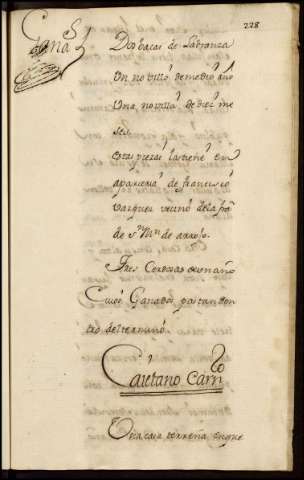 228
Dos bacas de Labranza
Un novillo de medio año
Una novilla de diez me
ses
estas piezas las tiene en
aparieria de francisco
vazquez vecino de la
de sn Mn de
Tres Cerdosas de un año
Cuios Ganados pastan den
tro del termino
Caietano Carro
Una casa terrena en que